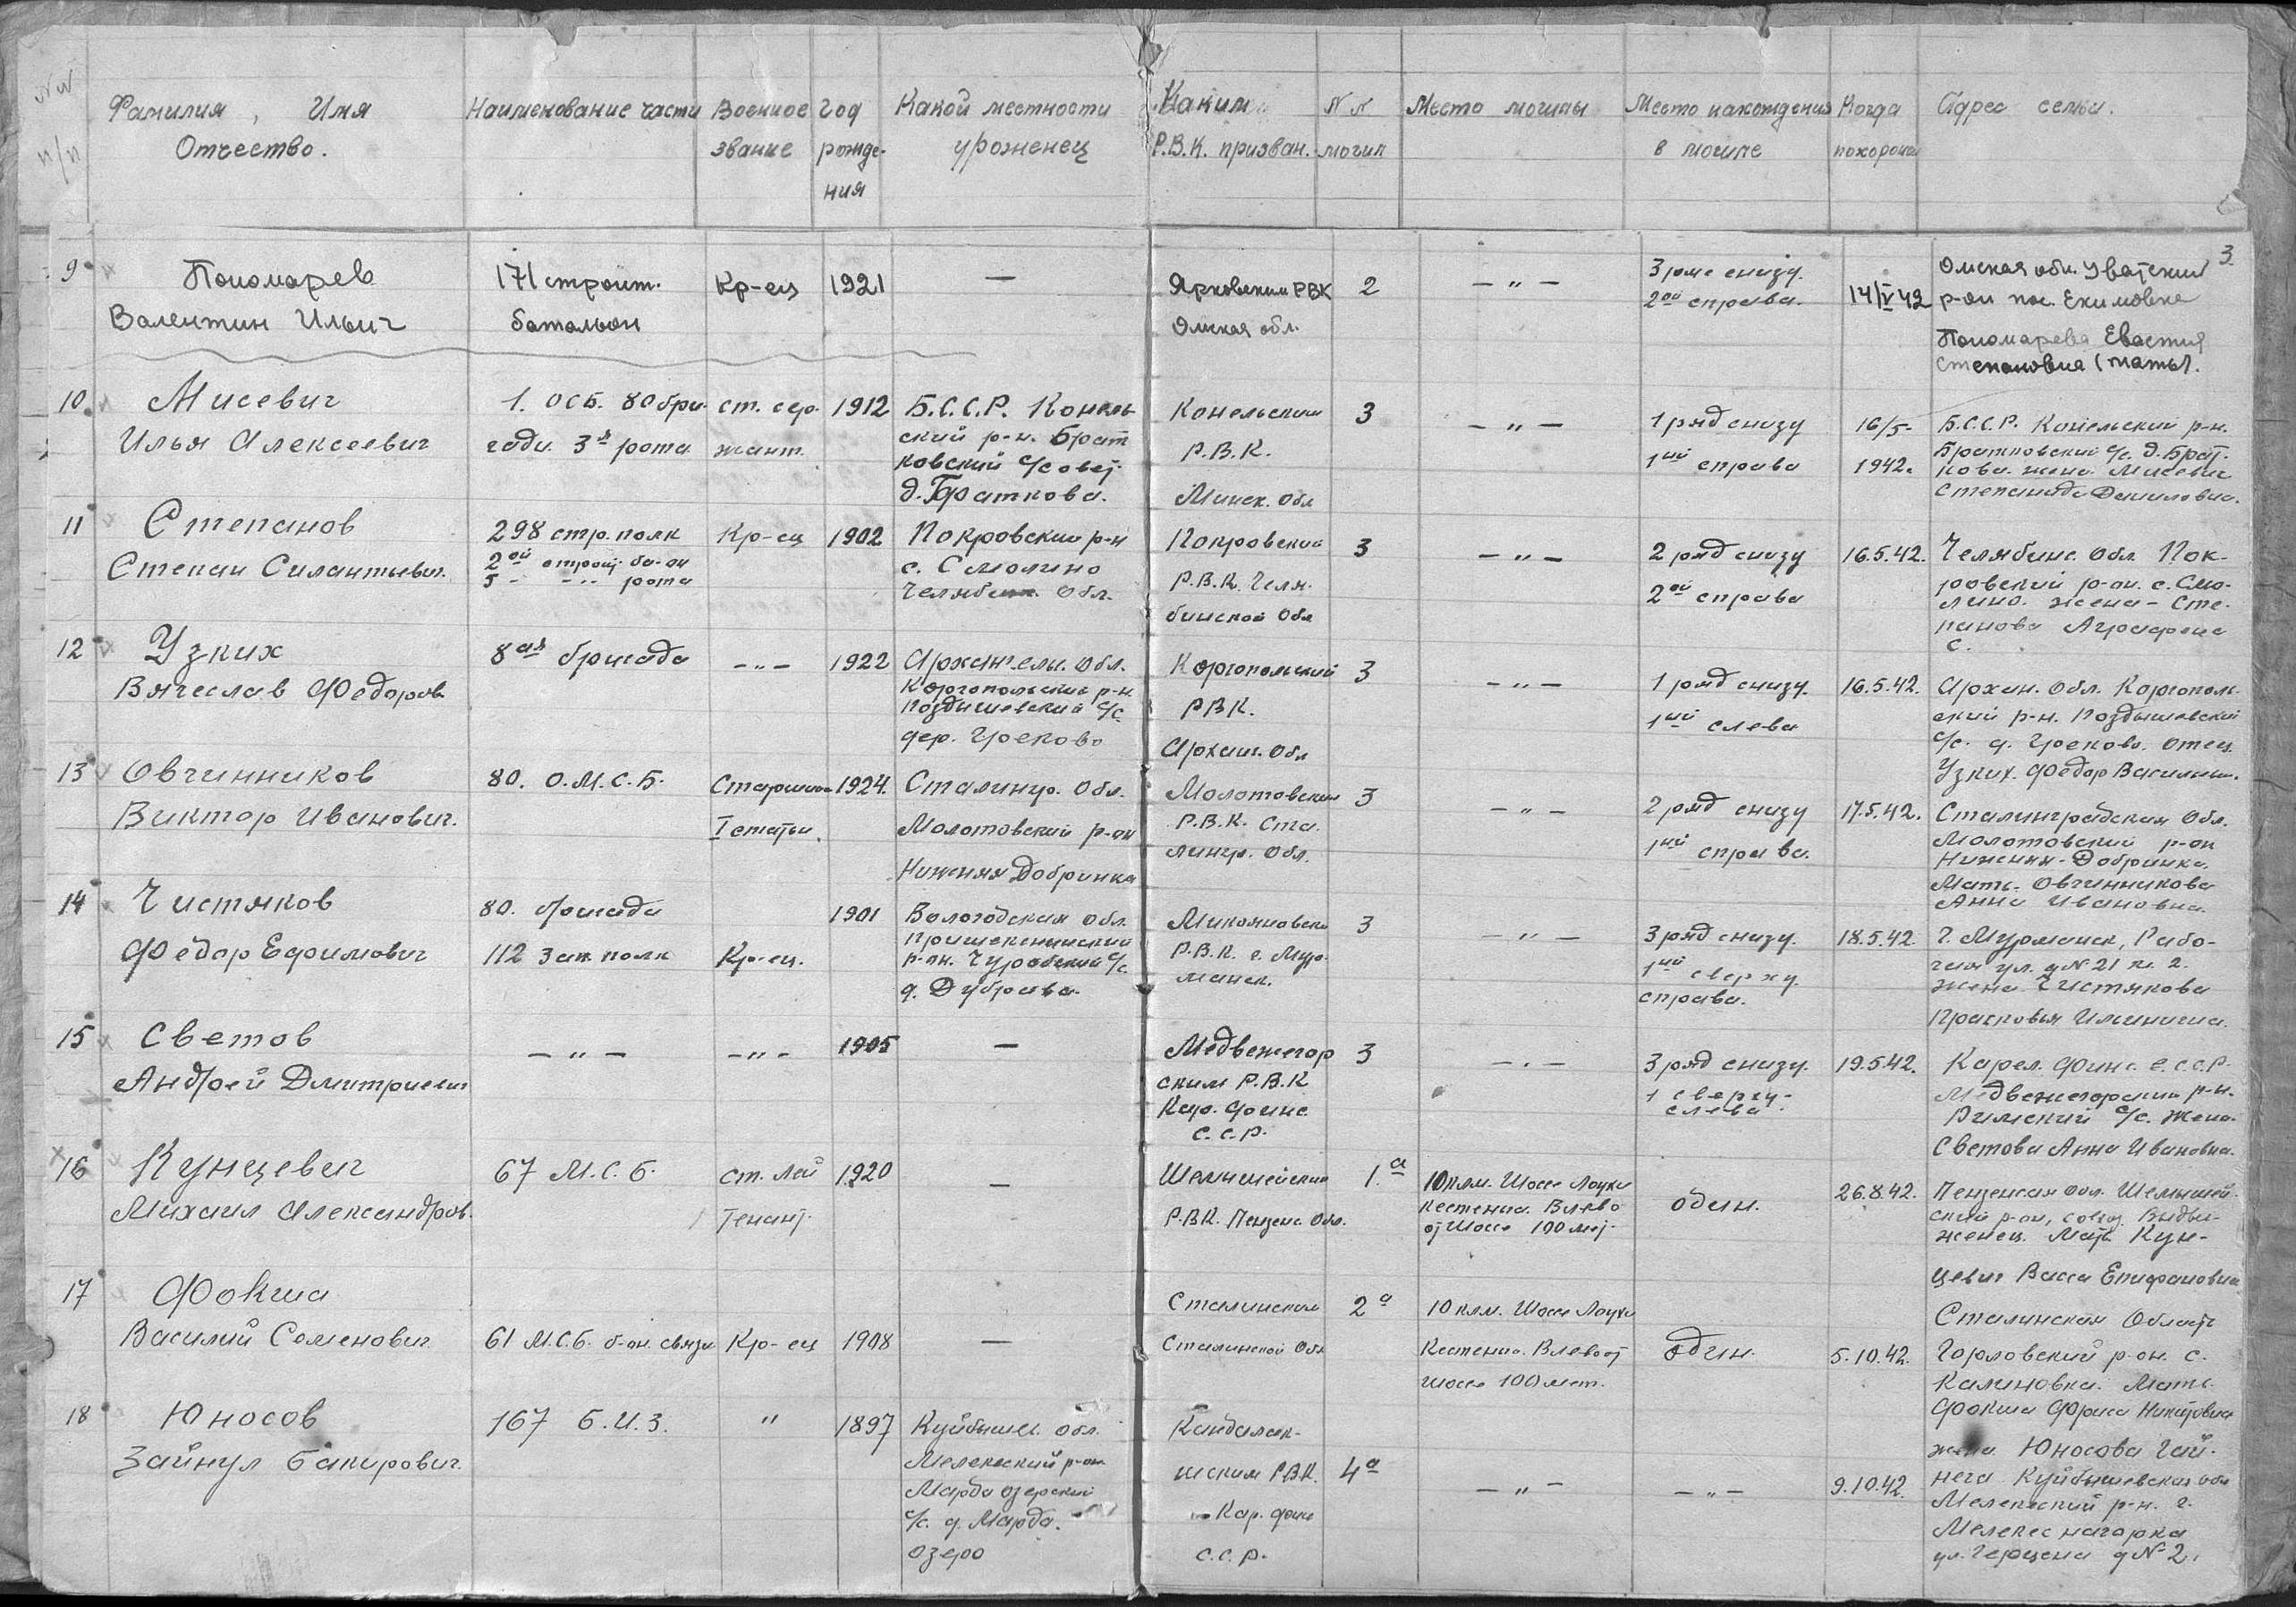 NN Фамилия, Имя Наименование части Военное Год Какой местности Каким NN Место могилы Место нахождения Когда Адрес семьи.
п/п Отчество. звание рожде- уроженец Р.В.К. призван. могил в могиле похоронен
ния
3.
9 Пономарев 171 строит. Кр-ец 1921 — Ярковским РВК 2 — " — 3 ряд снизу. 14/V 42 Омская обл. Уватский
Валентин Ильич батальон Омская обл. 2ой справа. р-он пос. Екимовка
Пономарева Евастия
Степановна (мать).
10. Мисевич 1. ОСБ. 80 бри- ст. сер- 1912 Б.С.С.Р. Копель- Копельским 3 — " — 1 ряд снизу 16/5- Б.С.С.Р. Копельский р-н.
Илья Алексеевич гада. 3я рота жант. ский р-н. Брат- Р.В.К. 1ый справа 1942. Братковский с/с. д. Брат-
ковский с/совет. Минск. Обл кова. жена. Мисевич
д. Браткова. Степанида Даниловна.
11 Степанов 298 стр. полк Кр-ец 1902 Покровский р-н Покровский 3 — " — 2 ряд снизу 16.5.42. Челябинс. Обл. Пок-
Степан Силантьевич. 2ой строит. ба-он с. Смолино Р.В.К. Челя- 2ой справа ровский р-он. с. Смо-
5 - - " - рота Челябинск. Обл. бинской Обл лино. жена - Сте-
панова Аграфена
С.
12 Узких 8ая бригада — " — 1922 Архангельс. Обл. Каргопольский 3 — " — 1 ряд снизу. 16.5.42. Архан. Обл. Каргополь-
Вячеслав Федоров. Каргопольский р-н. РВК. 1ый слева ский р-н. Поздышевский
Поздышевский с/с. Архан. Обл с/с. д. Греково. Отец
дер. Греково Узких. Федор Васильев.
13 Овчинников 80. О.М.С.Б. Старшина 1924. Сталингр. Обл. Молотовским 3 — " — 2 ряд снизу 17.5.42. Сталинградская Обл.
Виктор Иванович. I статьи. Молотовский р-он Р.В.К. Ста- 1ый справа. Молотовский р-он
Нижняя Добринка лингр. Обл. Нижняя-Добринка.
Мать- Овчинникова
Анна Ивановна.
14 Чистяков 80. бригада 1901 Вологодская обл. Микояновско 3 — " — 3 ряд снизу. 18.5.42. г. Мурманск, Рабо-
Федор Ефимович 112 зап. полк Кр-ец. Пришекснинский Р.В.К. г. Мур- 1ый сверху чая ул. д N 21 к. 2.
р-он. Чуровский с/с манск. справа. жена Чистякова
д. Дубрава. Прасковья Ильинична.
15 Светов — " — — " — 1905 — Медвежегор 3 — " — 3 ряд снизу. 19.5.42. Карел. Финс. С.С.Р.
Андрей Дмитриевич ским Р.В.К 1 сверху- Медвежегорский р-н.
Кар. Финс. слева. Римский с/с. Жена.
С.С.Р. Светова Анна Ивановна.
16 Кунцевич 67 М.С.Б. Ст. Лей 1920 — Шемышейский 1.а 10 клм. Шоссе Лоухи один. 26.8.42. Пензенская обл. Шемышей-
Михаил Александров. тенант. Р.В.К. Пензенс. Обл. Кестеньга. Влево ский р-он, совхоз. Выдви-
от шоссе 100 мет. женец. Мать Кун-
цевич Васса Епифановна
17 Фокша Сталинским 2а 10 клм. Шоссе Лоухи Сталинская Область
Василий Семенович 61 М.С.Б. б-он. связи Кр-ец 1908 — Сталинской Обл. Кестеньга. Влево от один. 5.10.42. Горловский р-он. с.
шоссе 100 мет. Калиновка. Мать.
Фокша Никитовна
18 Юносов 167 Б.И.З. " 1897 Куйбышев. обл. Кандалак- жена Юносова Гай-
Зайнул Бакирович. Мелекесский р-он шским Р.В.К. 4а — " — — " — 9.10.42. нега Куйбышевская обл
Марда озерский Кар. финс Мелекесский р-н. г.
с/с. д. Марда. С.С.Р. Мелекес нагорка
озеро ул. Герцена д N-2.